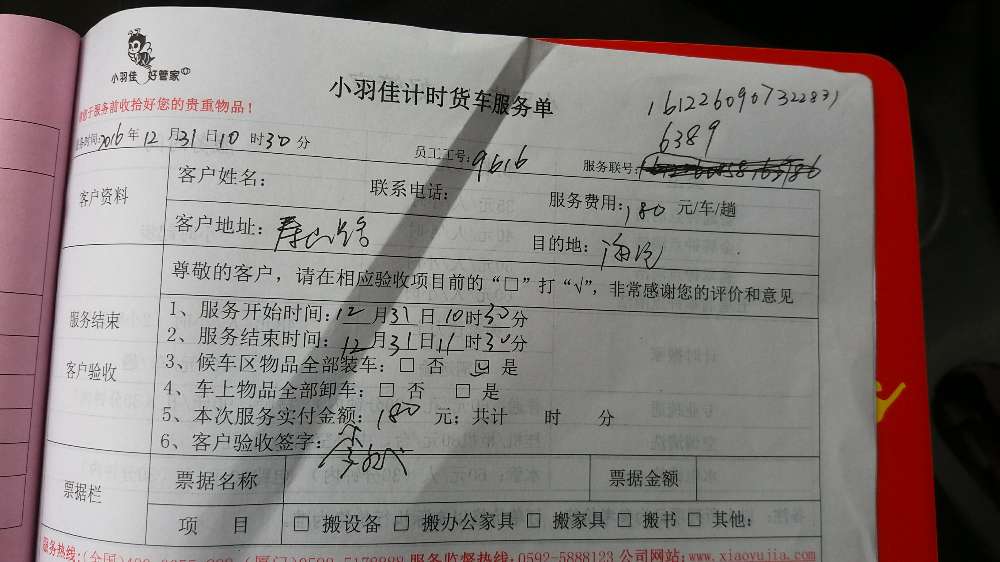 小羽佳 好管家
小羽佳计时货车服务单
于服务前收拾好您的贵重物品！
16122609073228
6389
务时间:2016年12月31日10时30分
员工工号:9616
服务联号:
客户资料
客户姓名:
联系电话:
服务费用:180元/车/趟
客户地址:寿山路
目的地:海沧
尊敬的客户，请在相应验收项目前的“□”打“√”，非常感谢您的评价和意见
服务结束
客户验收
1、服务开始时间:12月31日10时30分
2、服务结束时间:12月31日11时30分
3、候车区物品全部装车:□ 否 ☑ 是
4、车上物品全部卸车:□ 否 □ 是
5、本次服务实付金额:180元;共计 时 分
6、客户验收签字:
票据栏
票据名称
票据金额
项 目
□ 搬设备 □ 搬办公家具 □ 搬家具 □ 搬书 □ 其他:
服务热线:(全国)400 (厦门)0592 服务监督热线:0592-5888123 公司网站:www.xiaoyujia.com